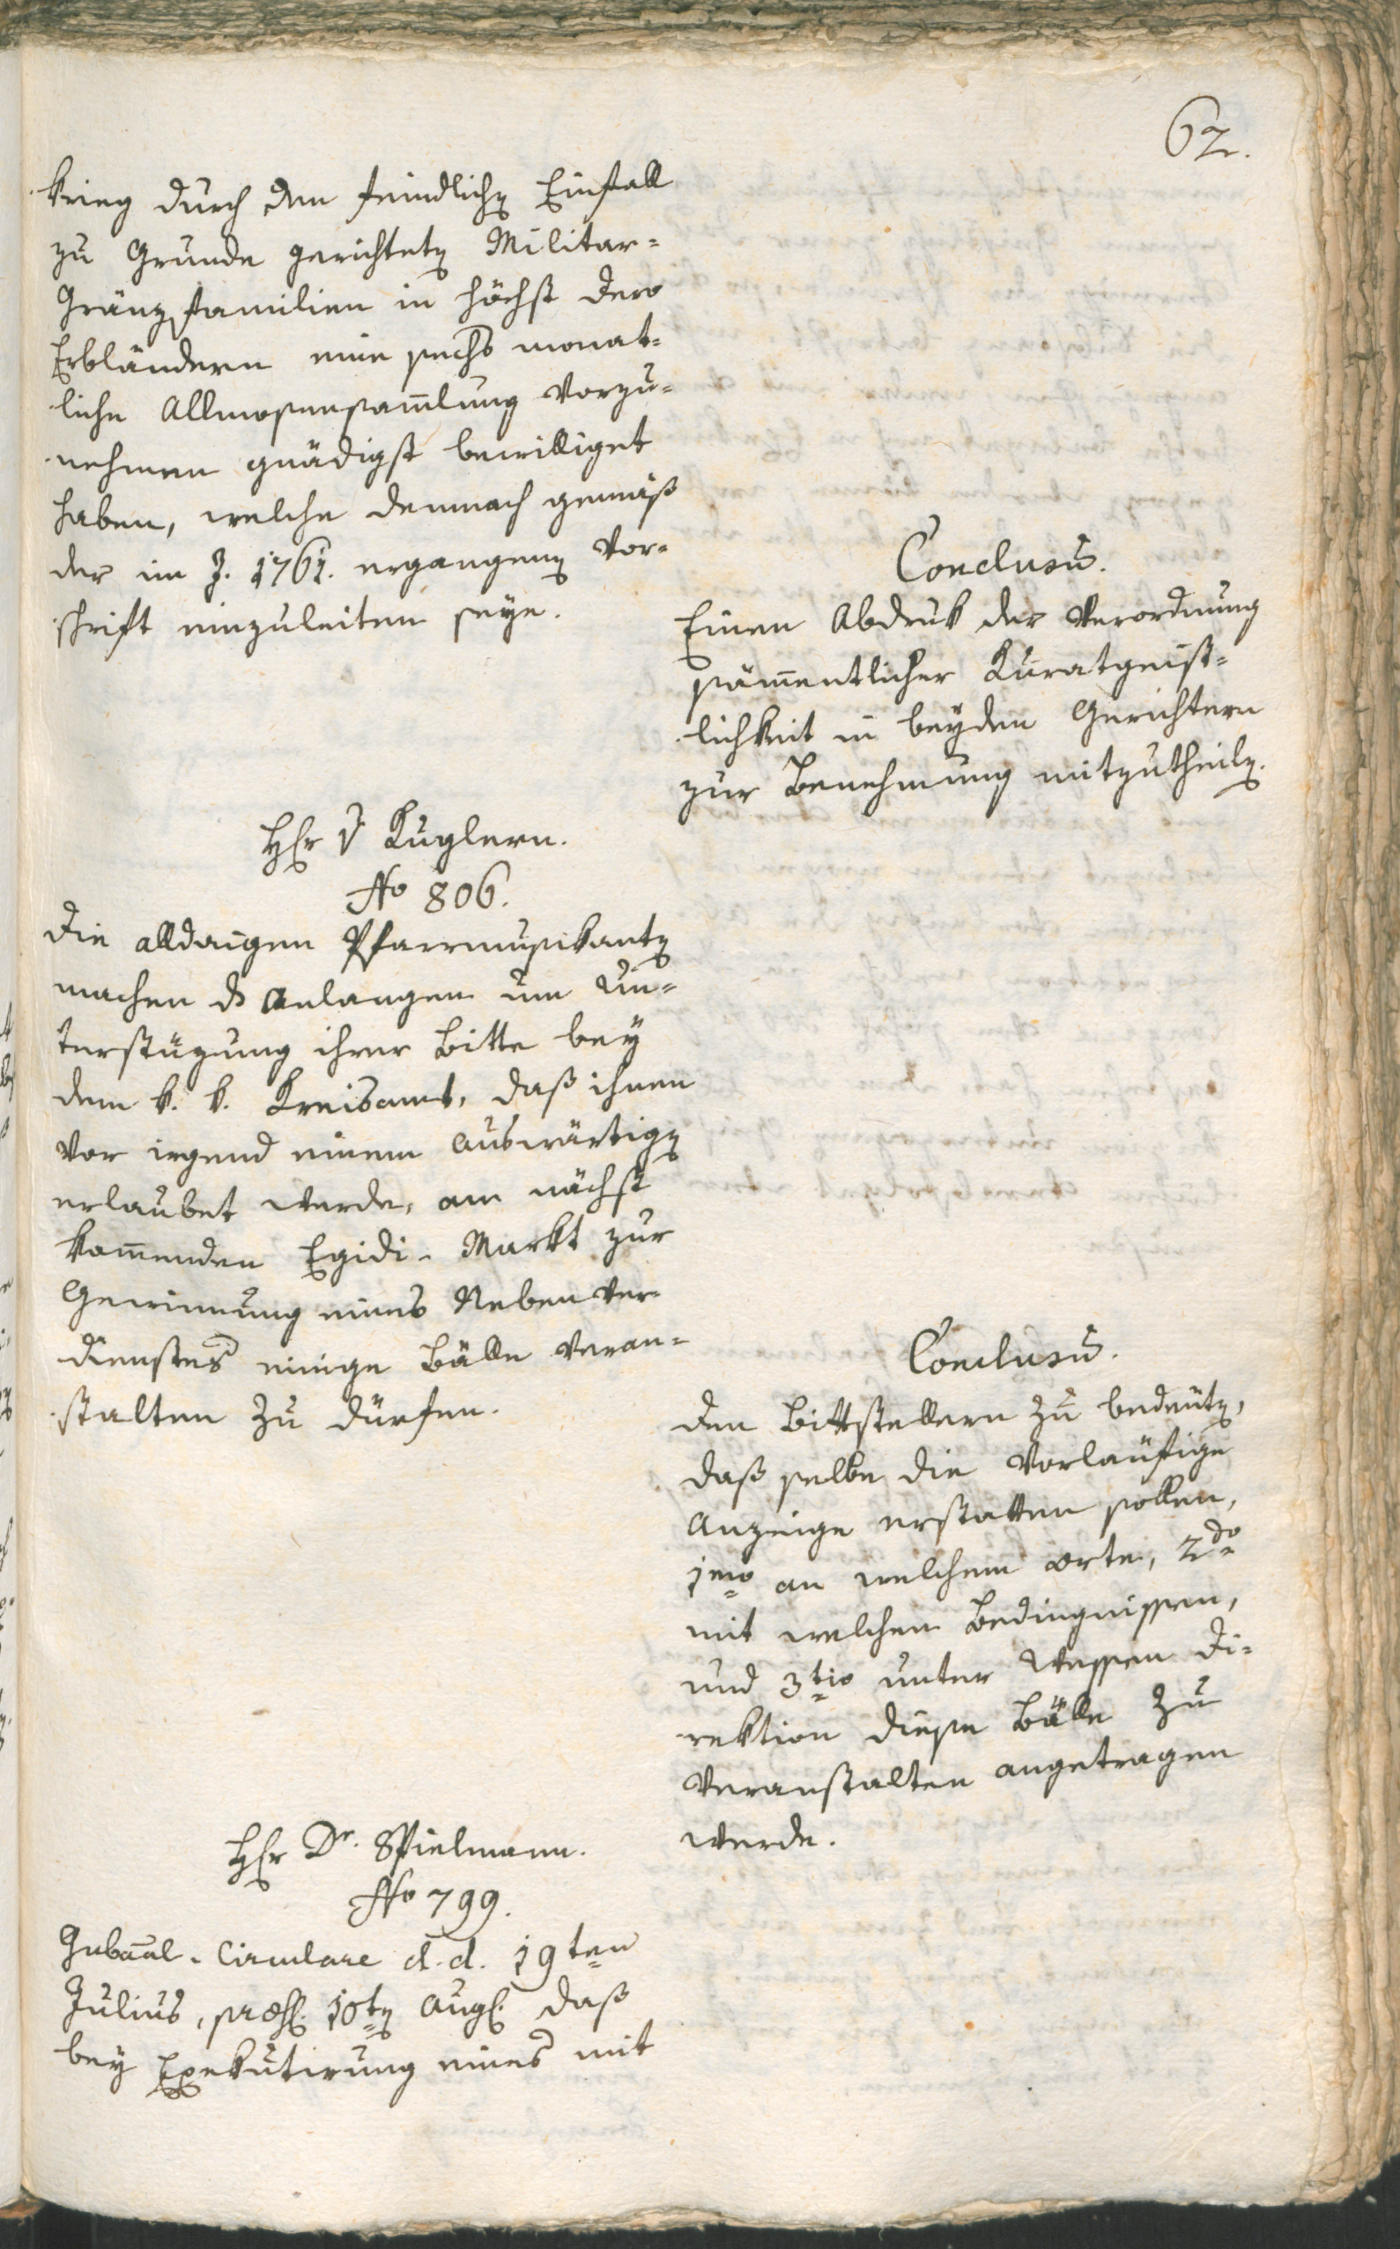 62.
krieg durch den feindlichen Einfall
zu Grunde gerichteten Militar=
Gränzfamilien in höchst dero
Erbländern eine sechs monat=
liche Allmosensam̄lung vorzu=
nehmen gnädigst bewilliget
haben, welche demnach gemäß
der im J. 1761. ergangenen Vor=
schrift einzuleiten seye.
Conclusū.
Einen Abdruk der Verordnung
säm̄entlicher Kuratgeist=
lichkeit in beyden Gerichtern
zur Benehmung mitzutheilen.
Hr v Kuglern.
No 806.
Die alldaigen Pfarrmusikanten
machen ds Anlangen um Un=
terstüzung ihrer Bitte bey
dem k. k. Kreisamt, daß ihnen
vor irgend einem Auswärtigen
erlaubet werde, am nächst
kom̄enden Egidi-Markt zur
Gewinnung eines Neben Ver-
dienstes einige Bälle veran=
stalten zu dürfen.
Conclusū.
Den Bittstellern zu bedeuten,
daß selbe die vorläufige
Anzeige erstatten sollen,
1mo an welchem Orte, 2do
mit welchen Bedingnissen,
und 3tio unter wessen Di=
rektion diese Bälle zu
veranstalten angetragen
werde.
Hr Dr. Spielmann.
No 799.
Gub[ern]al-Circulare d.d. 19ten
Julius, praes. 10ten Aug. daß
bey Exekutirung eines mit